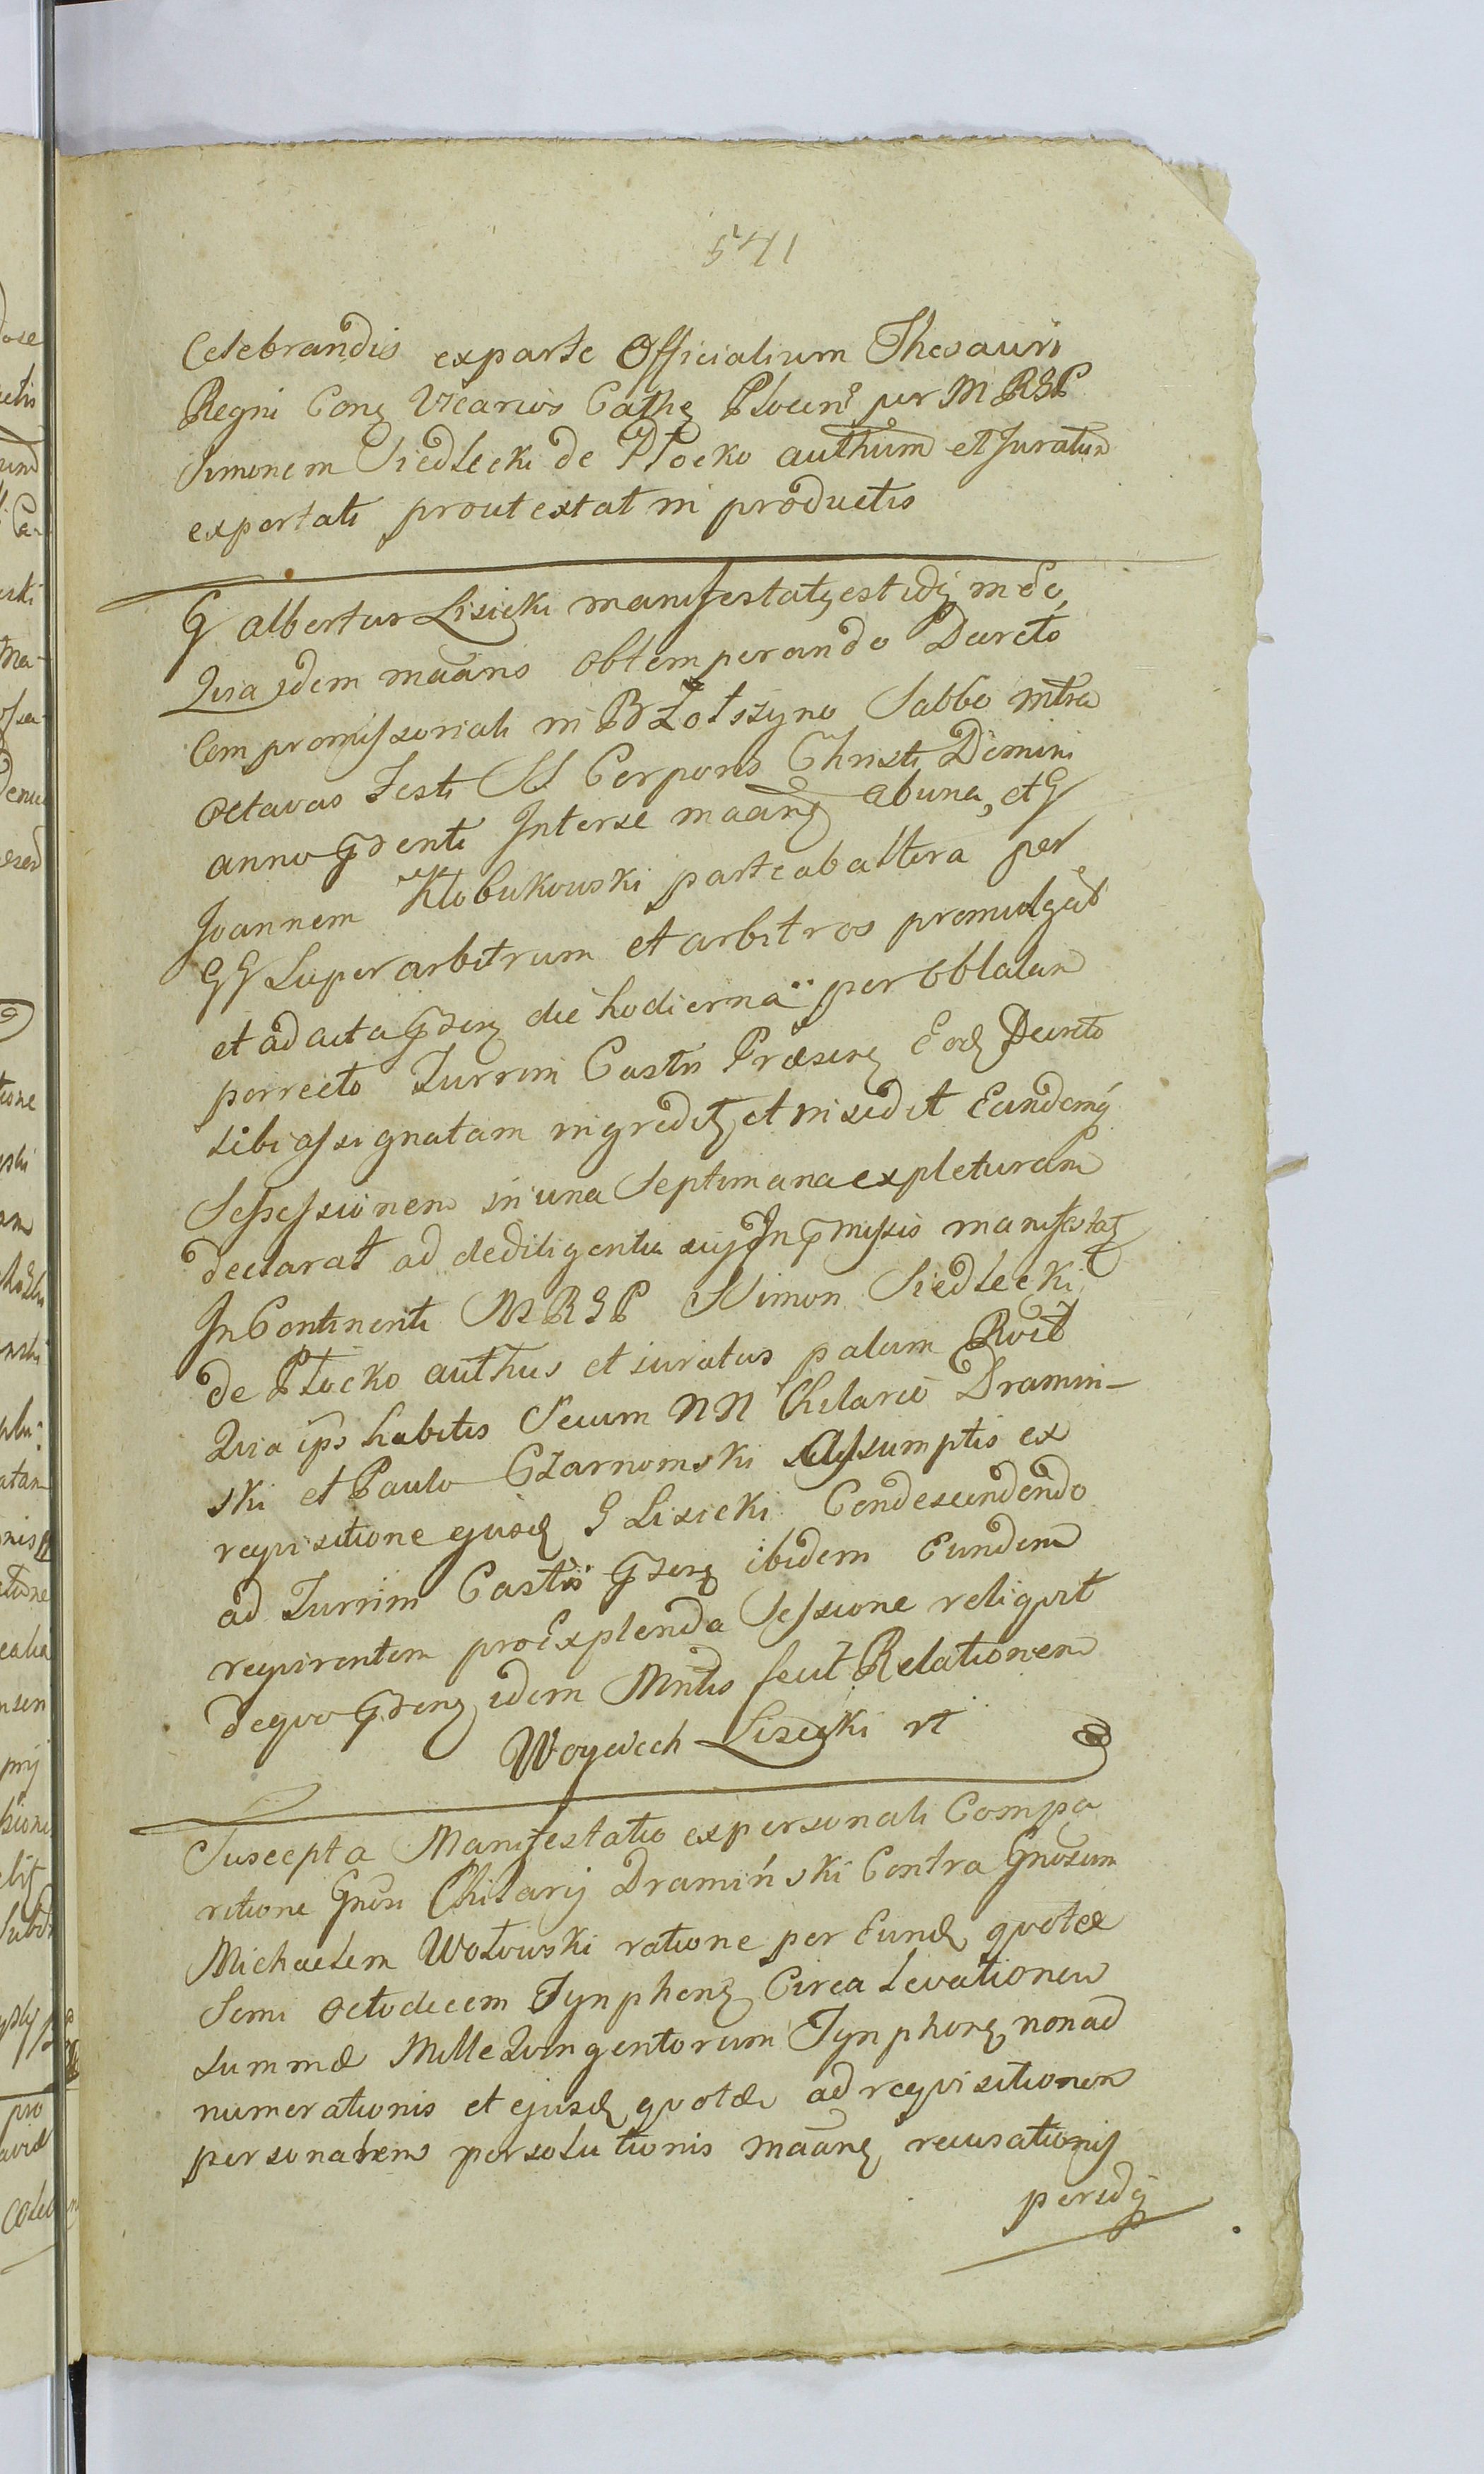 541
Celebrandis exparte Officialium Thesauri
Regni Conz Vicarios Cathz Plocens per MRGP
Simonem Siedlecki de Płocko authum et Juratum
exportati prout extat in productis
G albertus Lisicki manifestatz est idz in eo,
Quia idem maans obtemperando Decreto
Compromissoriali in Bżotszyno Sabbo intra
Octavas Festi SS Corporis Christi Domini
anno prdenti Interse maanz abuna, et G
Joannem Kłobukowski parte ab altera per
GG Superarbitrum et arbitros promulgat
et ad acta prdenz die hodierna per oblatam
porrecto Turrim Castri Præsenz Eodz Decreto
sibi assignatam ingreditz et insedit Eandemq
Sessessionem in una Septimana expleturum
declarat ad dediligentia suz In prmissis manifestatz
In Continenti MRGP Simon Siedlecki
de Płocko authus et iuratus palam Rvit
Quia ips habitis Secum NN Chilario Dramin-
ski et Paulo Czarnomski Assumptis ex
requisitione ejusd G Lisicki Condescendendo
ad Turrim Castri prdenz ibidem Eundem
requirentem pro Explenda Sessione reliquit
dequo prdenz idem Mntis fecit Relationem
Woyciech Lisicki rt
Suscepta Manifestatio ex personali Compa
ritione Gnosi Chilarij Dramiński Contra Gnosum
Michaelem Wołowski ratione per Eund quotæ
Semi Octodecem Tynphonz Circa Levationem
summæ Mille Quingentorum Tynphonz non ad
numerationis et ejusd quotæ ad requisitionem
personalem persolutionis maanz recusationis
per idz